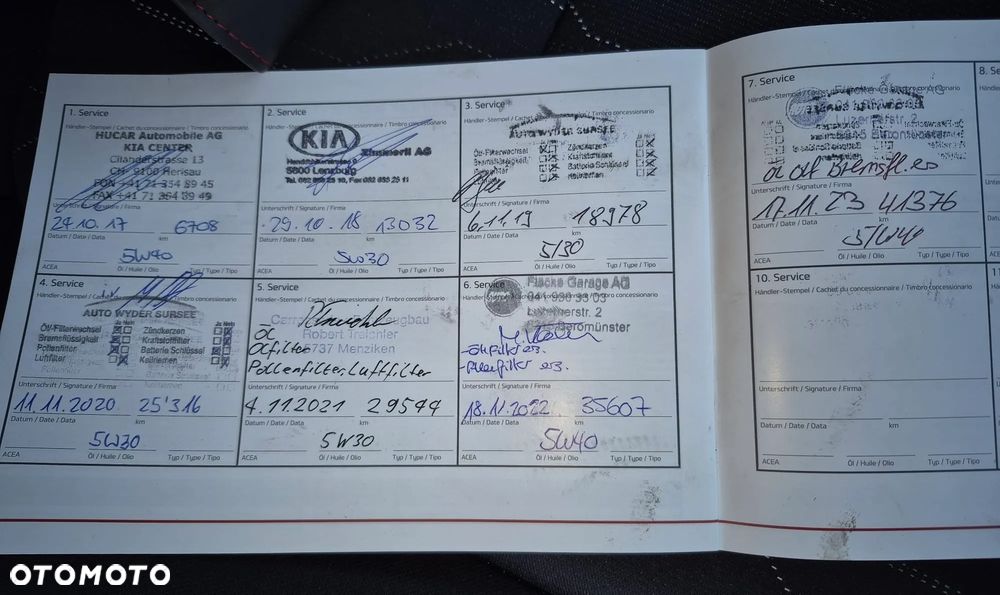 1. Service
Händler-Stempel / Cachet du concessionnaire / Timbro concessionario
HUCAR Automobile AG
KIA CENTER
Cilanderstrasse 13
CH- 9100 Herisau
FON +41 71 354 89 45
FAX +41 71 354 89 49
Unterschrift / Signature / Firma
24.10.17 6708
Datum / Date / Data km
5W40
ACEA Öl / Huile / Olio Typ / Type / Tipo
2. Service
Händler-Stempel / Cachet du concessionnaire / Timbro concessionario
KIA
AG
5600 Lenzburg
Unterschrift / Signature / Firma
29.10.18 13032
Datum / Date / Data km
5W30
ACEA Öl / Huile / Olio Typ / Type / Tipo
3. Service
Händler-Stempel / Cachet du concessionnaire / Timbro concessionario
AUTO WYDER SURSEE
Ja Nein Ja Nein
Öl-Filterwechsel Zündkerzen
Bremsflüssigkeit Kraftstofffilter
Pollenfilter Batterie Schlüssel
Luftfilter Keilriemen
Unterschrift / Signature / Firma
6.11.19 18978
Datum / Date / Data km
5/30
ACEA Öl / Huile / Olio Typ / Type / Tipo
4. Service
Händler-Stempel / Cachet du concessionnaire / Timbro concessionario
AUTO WYDER SURSEE
Ja Nein Ja Nein
Öl-Filterwechsel Zündkerzen
Bremsflüssigkeit Kraftstofffilter
Pollenfilter Batterie Schlüssel
Luftfilter Keilriemen
Unterschrift / Signature / Firma
11.11.2020 25'316
Datum / Date / Data km
5W30
ACEA Öl / Huile / Olio Typ / Type / Tipo
5. Service
Händler-Stempel / Cachet du concessionnaire / Timbro concessionario
Robert
5737 Menziken
Öl
Ölfilter
Pollenfilter, Luftfilter
Unterschrift / Signature / Firma
4.11.2021 29544
Datum / Date / Data km
5W30
ACEA Öl / Huile / Olio Typ / Type / Tipo
6. Service
Garage AG
041 930 33 03
2
Beromünster
-Ölfilter ers.
-Pollenfilter ers.
Unterschrift / Signature / Firma
18.11.2022 35607
Datum / Date / Data km
5W40
ACEA Öl / Huile / Olio Typ / Type / Tipo
7. Service
Luzernerstr. 2
Beromünster
Unterschrift / Signature / Firma
17.11.23 41376
Datum / Date / Data km
5/W40
ACEA Öl / Huile / Olio Typ / Type / Tipo
10. Service
Händler-Stempel / Cachet du concessionnaire / Timbro concessionario
Unterschrift / Signature / Firma
Datum / Date / Data km
ACEA Öl / Huile / Olio Typ / Type / Tipo
OTOMOTO